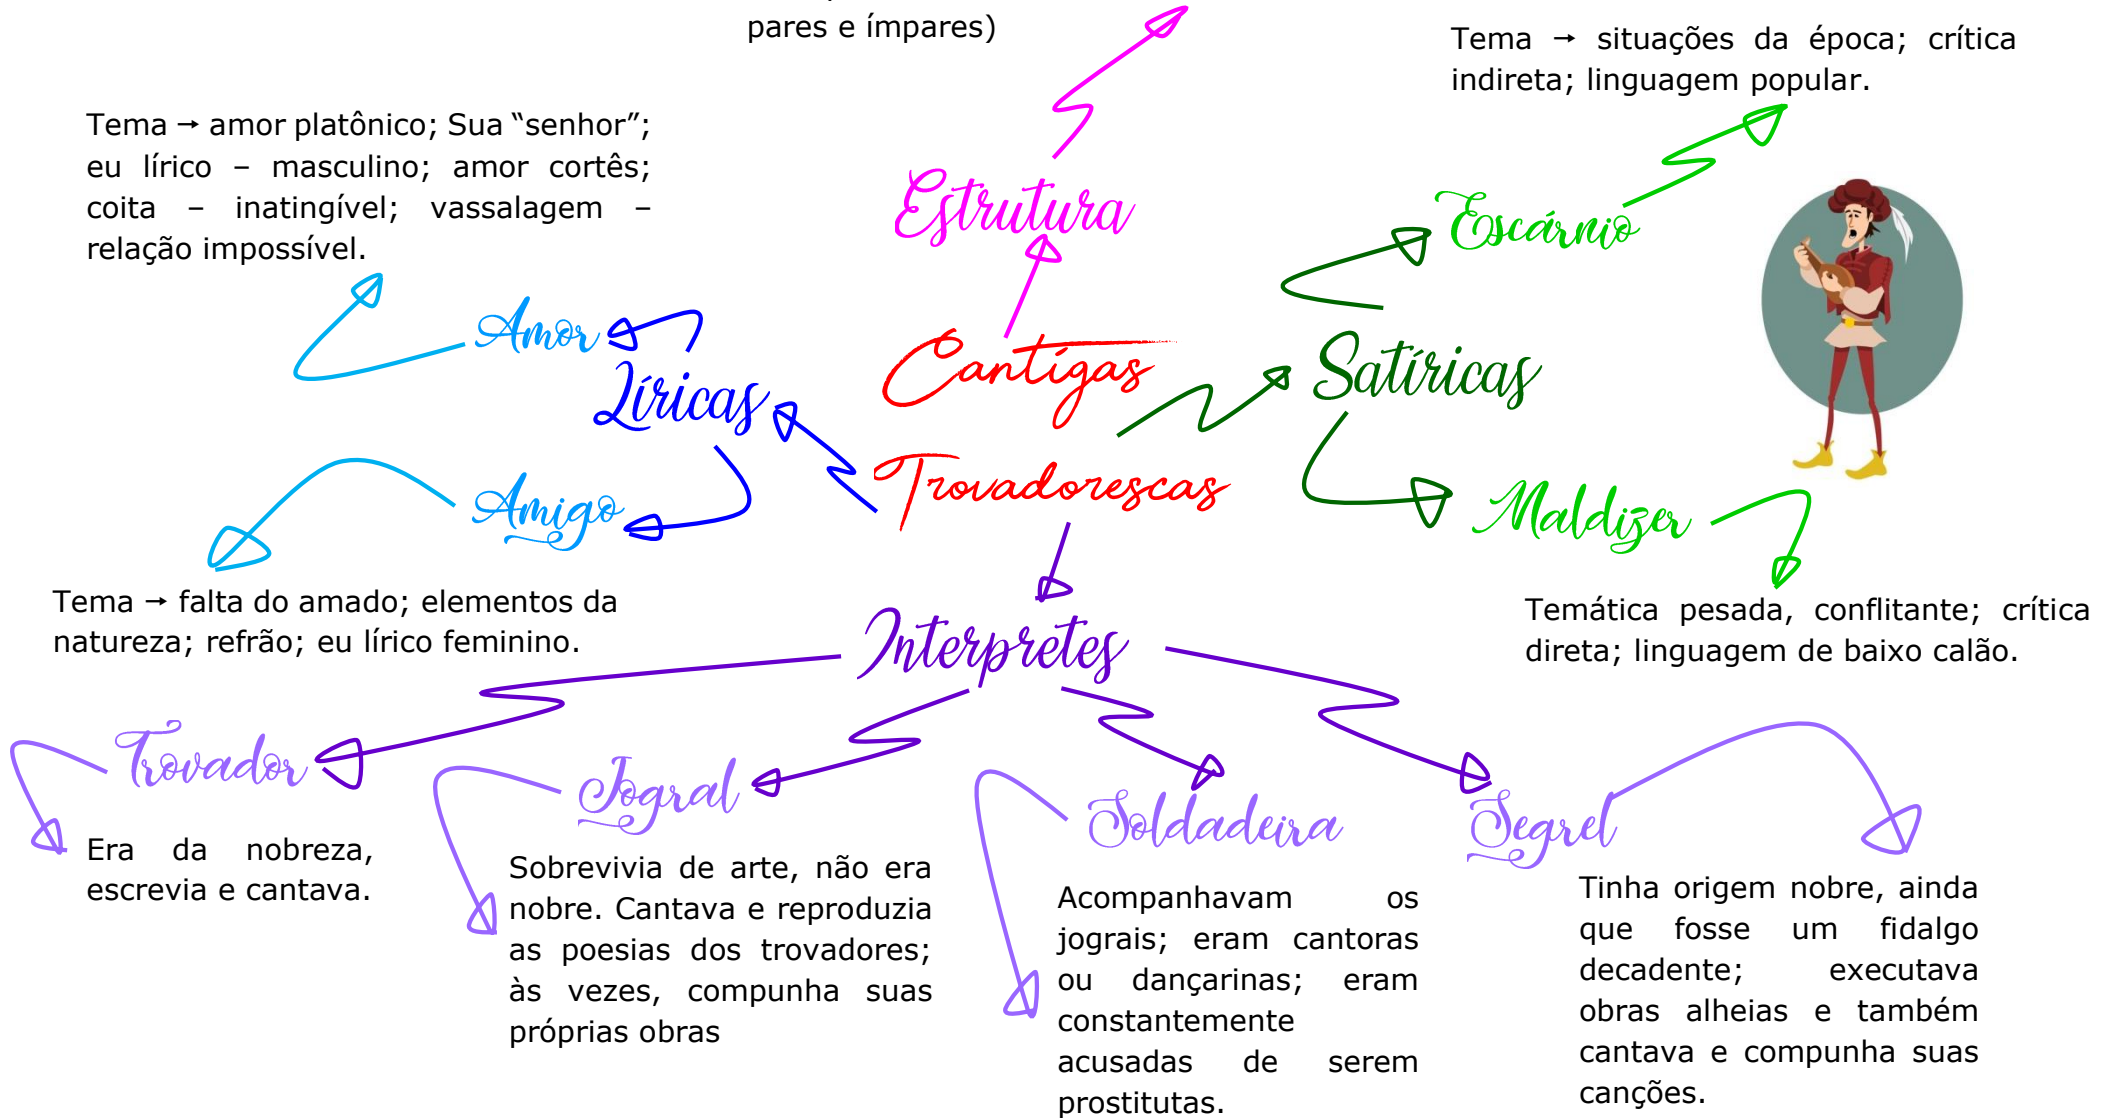 pares e ímpares)
Tema → situações da época; crítica
indireta; linguagem popular.
Tema → amor platônico; Sua “senhor”;
eu lírico – masculino; amor cortês;
coita – inatingível; vassalagem –
relação impossível.
Estrutura
Escárnio
Amor
Líricas
Cantigas
Trovadorescas
Satíricas
Amigo
Maldizer
Tema → falta do amado; elementos da
natureza; refrão; eu lírico feminino.
Temática pesada, conflitante; crítica
direta; linguagem de baixo calão.
Interpretes
Trovador
Era da nobreza,
escrevia e cantava.
Jogral
Sobrevivia de arte, não era
nobre. Cantava e reproduzia
as poesias dos trovadores;
às vezes, compunha suas
próprias obras
Soldadeira
Acompanhavam os
jograis; eram cantoras
ou dançarinas; eram
constantemente
acusadas de serem
prostitutas.
Segrel
Tinha origem nobre, ainda
que fosse um fidalgo
decadente; executava
obras alheias e também
cantava e compunha suas
canções.